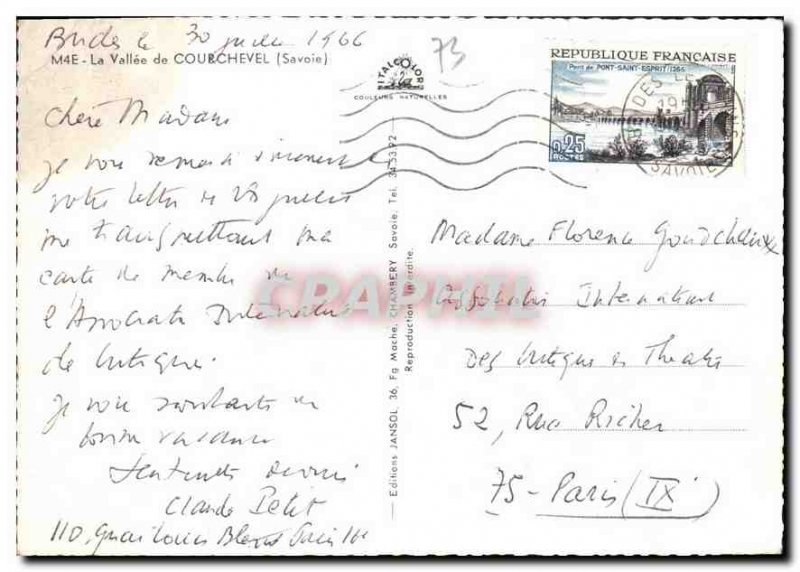 Brides le 30 juillet 1966
M4E - La Vallée de COURCHEVEL (Savoie)
ITALCOLOR
COULEURS NATURELLES
73
REPUBLIQUE FRANÇAISE
Pont de PONT-SAINT-ESPRIT/1966
0,25
POSTES
SAVOIE
Chère Madame
je vous remercie vivement
votre lettre de 28 juillet
me transmettant ma
carte de membre de
l'Association Internationale
de Critique.
je vous souhaite de
bonnes vacances
Sentiments dévoués
Claude Petit
110, Quai Louis Blériot Paris 16e
Editions JANSOL, 36, Fg Mache, CHAMBERY Savoie. Tel. 34.53.92
Reproduction interdite.
CPAPHIL
Madame Florence
Association Internationale
Des Critiques de Théâtre
52, Rue Richer
75 - Paris (IX)